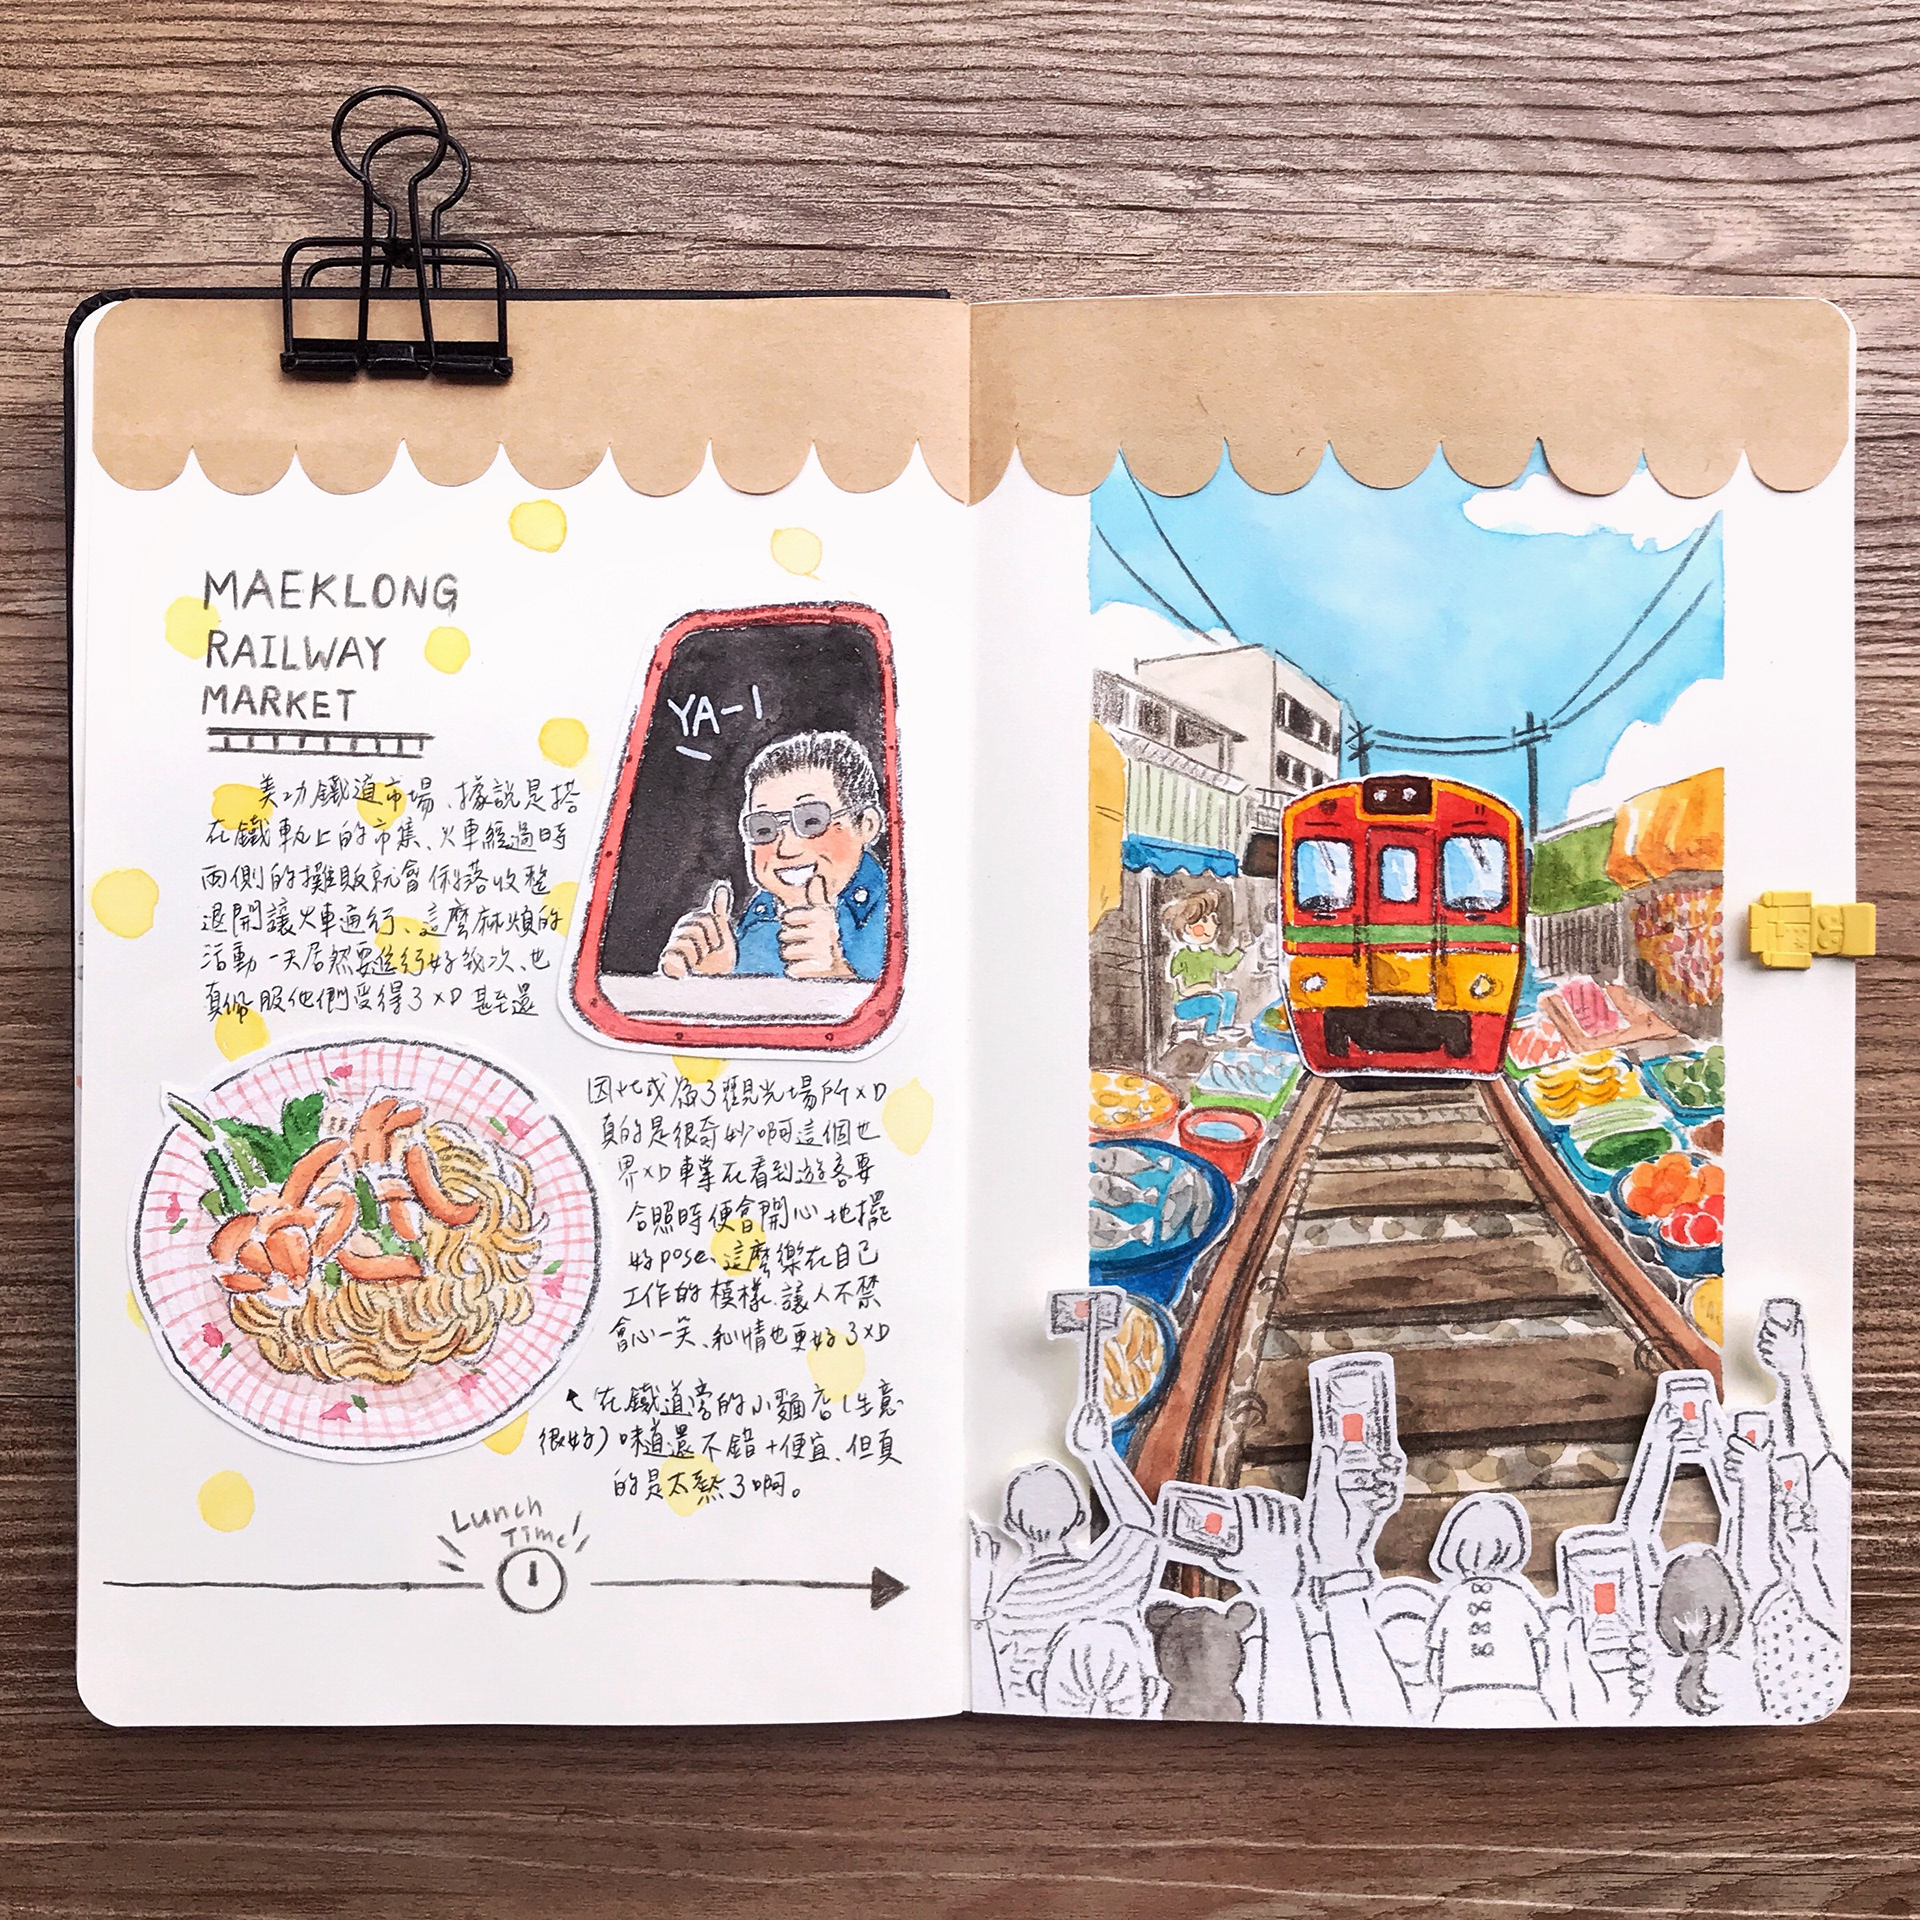 MAEKLONG
RAILWAY
MARKET
美功鐵道市場、據說是搭
在鐵軌上的市集、火車經過時
兩側的攤販就會俐落收整
退開讓火車通行、這麼麻煩的
活動一天居然要進行好幾次、也
真佩服他們受得了XD 甚至還
YA-!
因此成為了觀光場所XD
真的是很奇妙啊這個世
界XD 車掌在看到遊客要
合照時便會開心地擺
好pose、這麼樂在自己
工作的模樣、讓人不禁
會心一笑、心情也更好了XD
↖在鐵道旁的小麵店(生意
很好)味道還不錯+便宜、但真
的是太熱了啊。
Lunch
Time!
8888